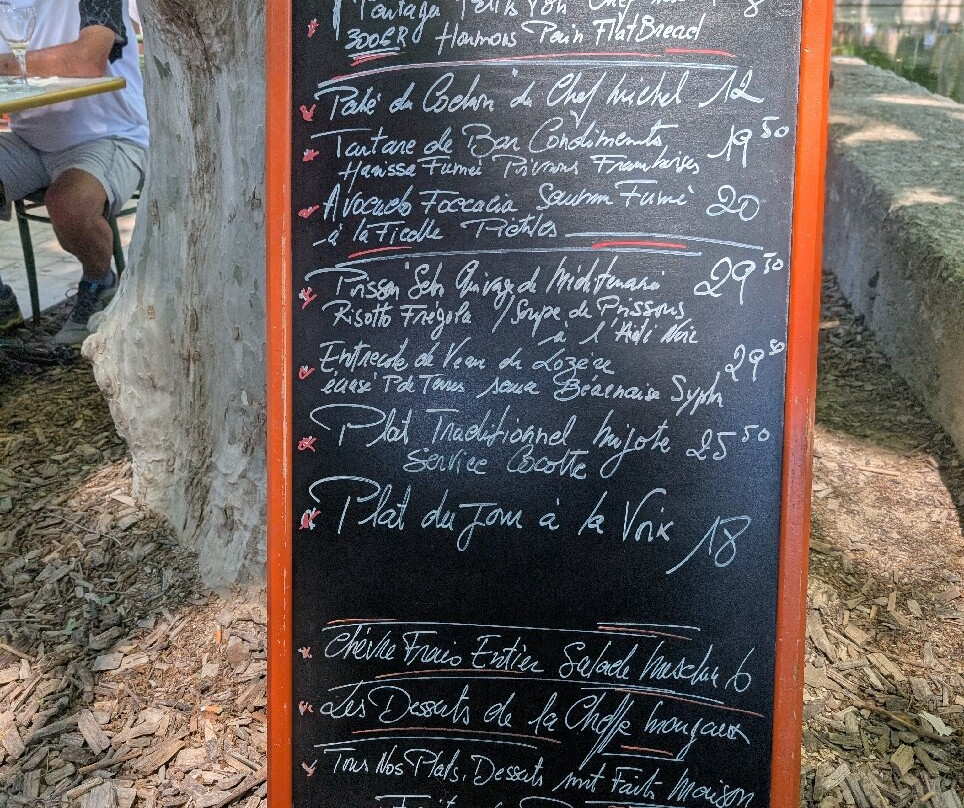 Partage
300GR Houmous Pain FlatBread
Paté du Cochon du Chef Michel 12
Tartare de Bar Condiments 19 50
Harissa Fumé Poivrons Framboises
Avocado Foccacia Saumon Fumé 20
à la Ficelle
Poisson Selon Arrivage de Méditerranée 29 50
Risotto Frégola / Soupe de Poissons
à l'Aïoli Noir
Entrecote de Veau de Lozère 29 50
écrasé P de Terres Béarnaise Syph
Plat Traditionnel Mijoté 25 50
Service Cocotte
Plat du Jour à la Voix 18
Chèvre Frais Entier Salade Mesclun 6
Les Desserts de la Cheffe
Tous Nos Plats, Desserts sont Faits Maison